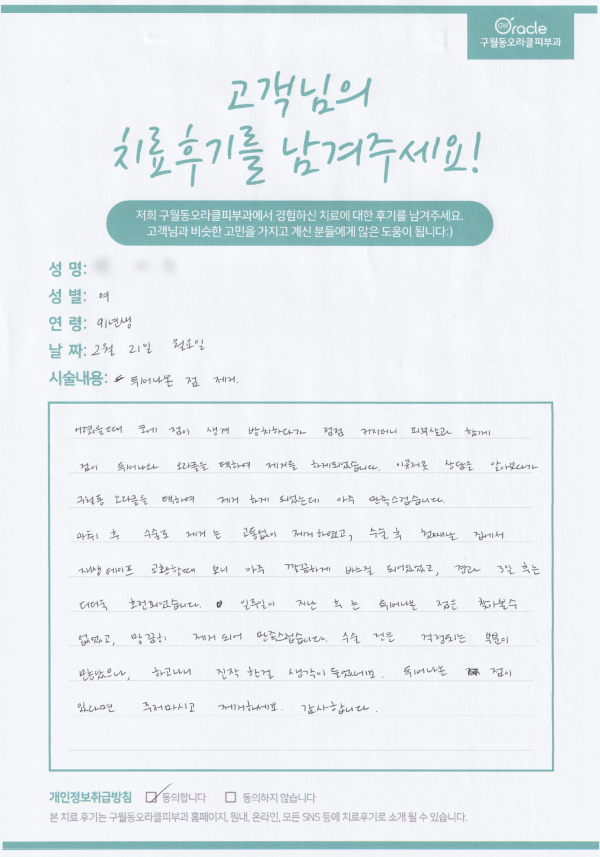 Oracle
구월동오라클피부과
고객님의
치료후기를 남겨주세요!
저희 구월동오라클피부과에서 경험하신 치료에 대한 후기를 남겨주세요.
고객님과 비슷한 고민을 가지고 계신 분들에게 많은 도움이 됩니다:)
성 명:
성 별: 여
연 령: 91년생
날 짜: 2월 21일 월요일
시술내용: 튀어나온 점 제거.
어렸을때 코에 점이 생겨 방치하다가 점점 커지더니 피부살과 함께
점이 튀어나와 오라클을 택하여 제거를 하게되었습니다. 이곳저곳 상담을 알아보다가
구월동 오라클을 택하여 제거 하게 되었는데 아주 만족스럽습니다.
마취 후 수술로 제거는 고통없이 제거하였고, 수술 후 첫째날 집에서
재생테이프 교환할때 보니 아주 깔끔하게 마느질 되어있었고, 경과 3일 후는
더더욱 호전되었습니다. 일주일이 지난 후는 튀어나온 점은 찾아볼수
없었고, 말끔히 제거되어 만족스럽습니다. 수술 전은 걱정되는 부분이
많았으나, 하고나니 진작 한걸 생각이 들었네요. 튀어나온 점이
있다면 주저마시고 제거하세요. 감사합니다.
개인정보취급방침 동의합니다 동의하지 않습니다
본 치료 후기는 구월동오라클피부과 홈페이지, 원내, 온라인, 모든 SNS 등에 치료후기로 소개 될 수 있습니다.